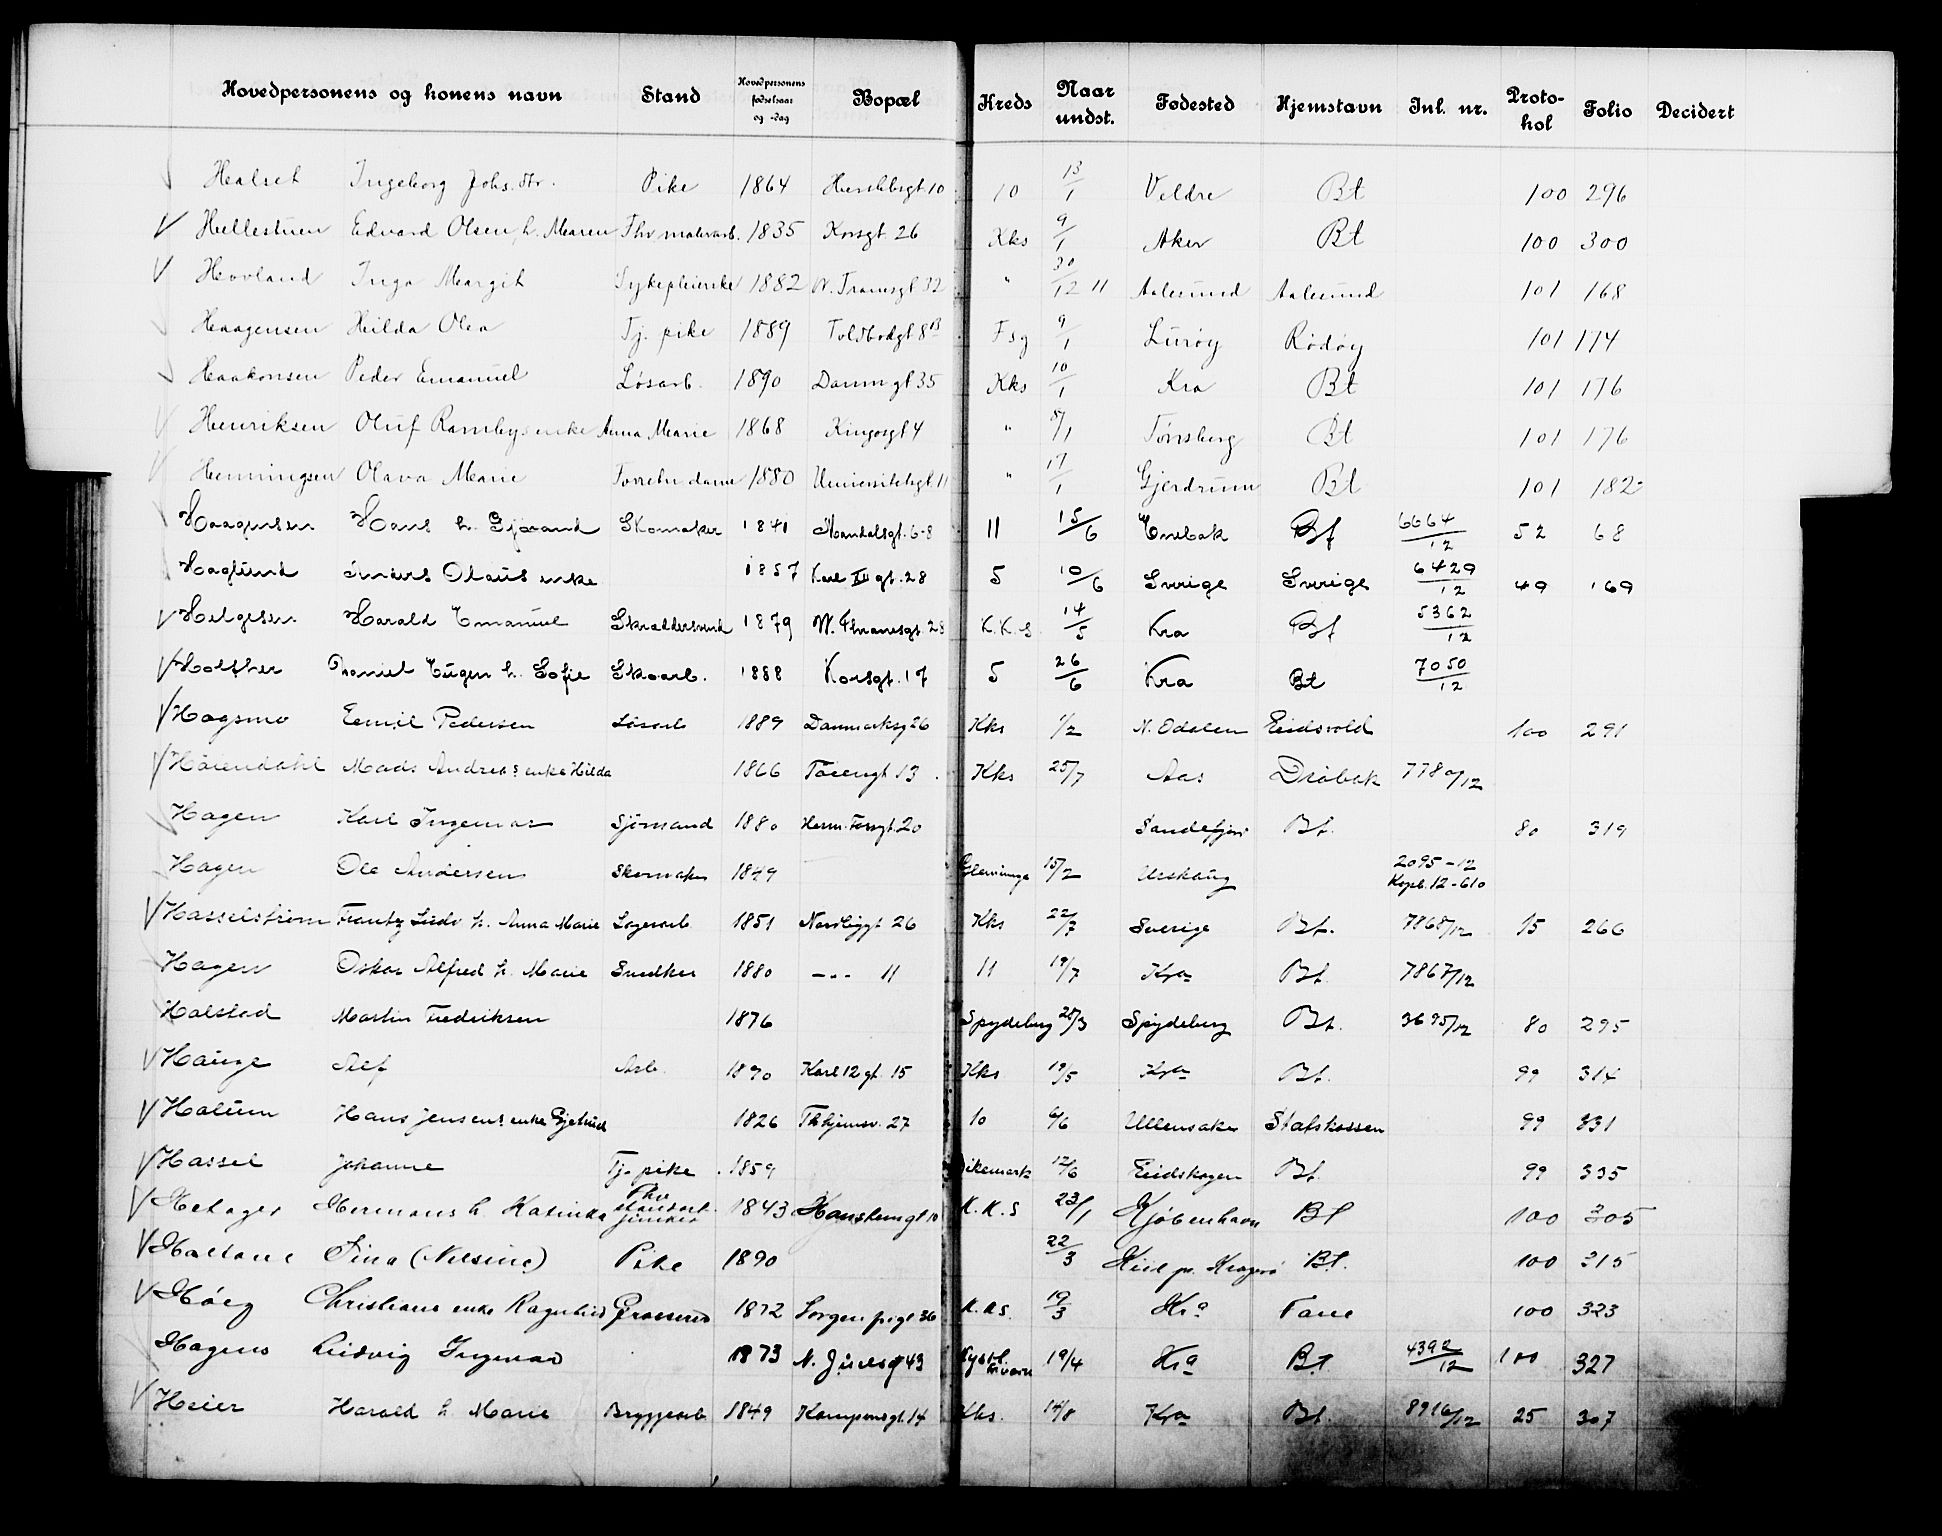 Hovedpersonens og konens navn Stand Hovedpersonens fødselsaar og -dag Bopæl Kreds Naar undst. Fødested Hjemstavn Inl. nr. Protokol Folio Decidert
Halset Ingeborg Johs. dtr. Pike 1864 10 13/1 Veldre Bt 100 296
√ Hellestuen Edvard Olsen, h. Maren Fhv. 1835 Korsgt 26 Kks 9/1 Aker Bt 100 300
√ Hovland Inga Margit Sykepleierske 1882 W. Tranesgt 32 " 30/12 11 Aalesund Aalesund 101 168
Haagensen Hilda Olea Tj. pike 1889 Toldbodgt 8B Fsg 9/1 Lurøy Rødøy 101 174
Haakonsen Peder Emanuel Løsarb. 1890 Danm gt 35 Kks 10/1 Kra Bt 101 176
√ Henriksen Oluf enke Anna Marie 1868 Kingosgt 4 " 8/1 Tønsberg Bt 101 176
√ Henningsen Olava Marie Forretn. dame 1880 Universitetsgt. 11 " 17/1 Gjerdrum Bt 101 182
Haagensen Hans h. Skomaker 1841 Mandalsgt. 6-8 11 15/6 Enebak Bf 6664/12 52 68
Haglund Anders Olaus enke 1857 Karl XII gt. 28 5 10/6 Sverige Sverige 6429/12 49 169
√ Helgesen Harald Emanuel Skræddersvend 1879 W. Thranesgt. 28 K.K.S. 14/5 Kra Bf 5362/12
√ Holther Daniel Eugen h. Sofie Skoarb. 1888 Korsgt. 17 5 26/6 Kra Bt 7050/12
√ Hagsmo Eemil Pedersen Løsarb 1889 Danmarksg 26 Kks 1/2 N. Odalen Eidsvold 100 291
√ Hallendahl Mads Andreas enke Hilda 1866 Tøiengt 13 Kks 25/7 Aas Drøbak 12
Hagen Karl Ingemar Sjømand 1880 Herm. Fossgt. 20 Sandefjord Bt. 80 319
Hagen Ole Andersen Skomaker 1849 Glemminge 15/2 Urskaug 2095-12 Kopb. 12-610
√ Hasselstrøm Frantz Ludv h. Anna Marie Lagerarb 1851 Nordbygt 26 Kks 22/7 Sverige Bt. 7868/12 15 266
Hagen Oskar Alfred h. Marie Snedker 1880 -"- 11 11 19/7 Kra Bt. 7867/12
Halstad Martin Fredriksen 1876 Spydeberg 28/3 Spydeberg Bt. 3695/12 80 295
√ Hauge Alf Arb. 1890 Karl 12 gt. 15 Kks 19/5 Kra Bt. 99 314
√ Halum Hans Jensens enke Gjetrud 1826 Thhjemsv. 27 10 6/6 Ullensaker Statskassen 99 331
√ Hassel Johanne Tj. pike 1859 Dikemark 12/6 Eidskogen Bt. 99 335
√ Metager Hermans h. Katinka Fhv. 1843 Hausmansgt 10 K.K.S 23/1 Kjøbenhavn Bt 100 305
√ Haltane Sina (Nilsine) Pike 1890 22/3 Kiil pr. Kragerø Bt. 100 315
√ Høeg Christians enke Ragnhild 1872 Sorgenfrigt 36 K.K.S. 19/3 Kra Fane 100 323
Hagens Ludvig Ingmar 1873 N. Juelsg 43 19/4 Kra Bt 4392/12 100 327
√ Heier Harald h. Marie Bryggearb 1849 Kampensgt. 14 Kks. 14/8 Kra Bt. 8916/12 25 307